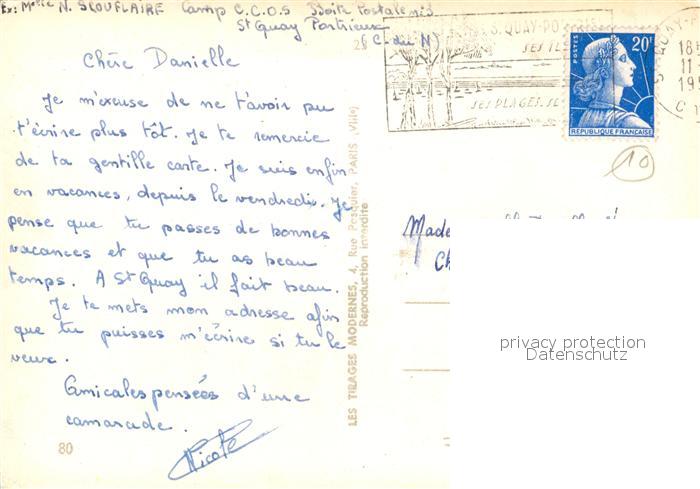 Ex: Melle N. SCOUFLAIRE Camp C.C.O.S Boîte Postale n°3
St Quay Portrieux
(C-du N)
Chère Danielle
Je m'excuse de ne t'avoir pu
t'écrire plus tôt. Je te remercie
de ta gentille carte. Je suis enfin
en vacances, depuis le vendredi. Je
pense que tu passes de bonnes
vacances et que tu as beau
temps. A St Quay il fait beau.
Je te mets mon adresse afin
que tu puisses m'écrire si tu le
veux.
Amicales pensées d'une
camarade.
Nicole
80
LES TIRAGES MODERNES, 4, Rue Pasquier, PARIS (VIIIe)
Reproduction interdite
S. QUAY-PO
SES PLAGES. SE
18
11-
POSTES
20F
REPUBLIQUE FRANÇAISE
10
Made
Ch
privacy protection
Datenschutz